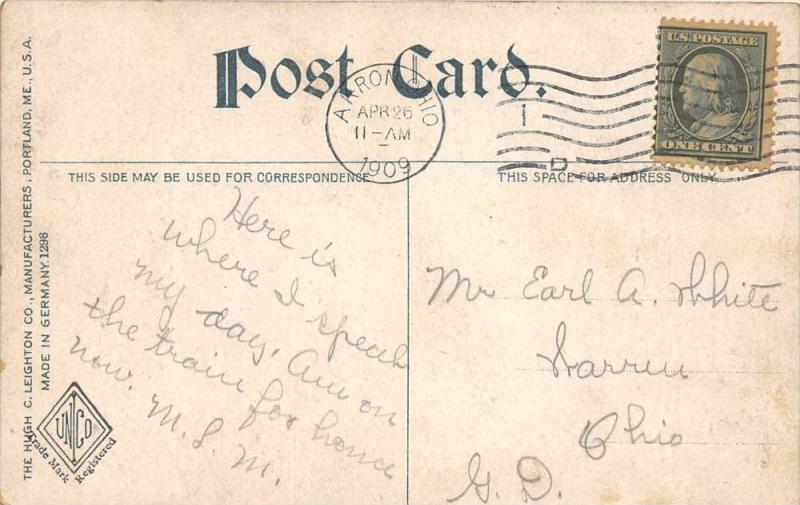 Post Card.
AKRON, OHIO
APR 26
11-AM
1909
1
U.S. POSTAGE
ONE CENT
THIS SIDE MAY BE USED FOR CORRESPONDENCE
THIS SPACE FOR ADDRESS ONLY
Here is
where I speak
my day. Am on
the train for honce
now. M. L. M.
Mr Earl A. White
Warren
Ohio
G. D.
THE HUGH C. LEIGHTON CO., MANUFACTURERS, PORTLAND, ME., U.S.A.
MADE IN GERMANY. 1296
UNCO
Trade Mark
Registered